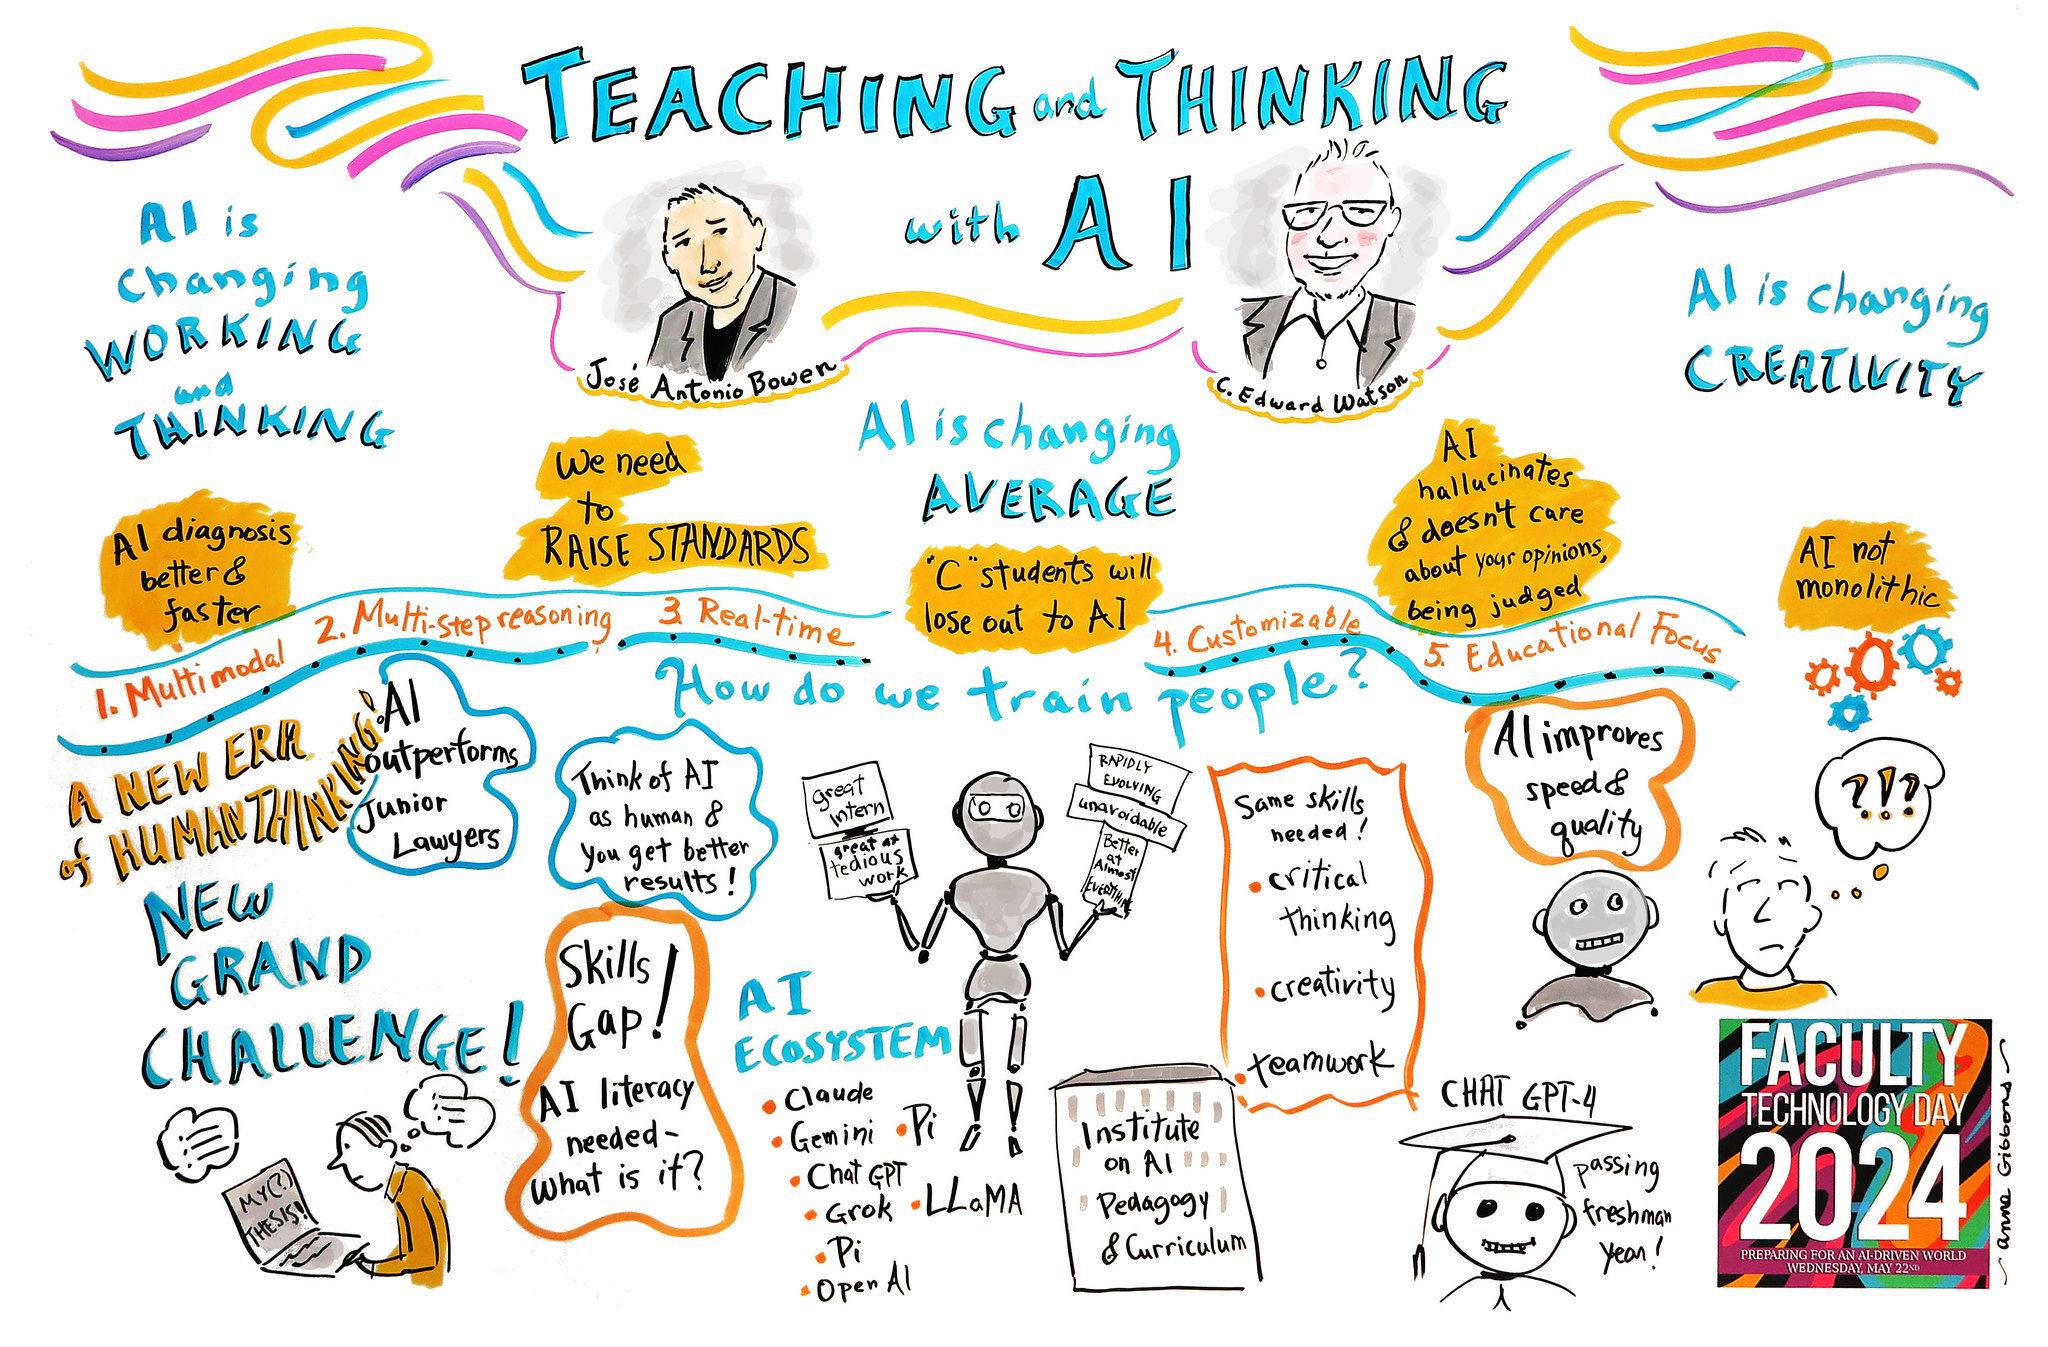 TEACHING and THINKING
with AI
José Antonio Bowen
C. Edward Watson
AI is
changing
WORKING
and
THINKING
AI is changing
AVERAGE
AI is changing
CREATIVITY
AI diagnosis
better &
faster
We need
to
RAISE STANDARDS
"C" students will
lose out to AI
AI
hallucinates
& doesn't care
about your opinions,
being judged
AI not
monolithic
1. Multimodal
2. Multi-step reasoning
3. Real-time
4. Customizable
5. Educational Focus
How do we train people?
A NEW ERA
of HUMAN THINKING!
AI
outperforms
Junior
Lawyers
NEW
GRAND
CHALLENGE!
MY(?)
THESIS!
Think of AI
as human &
you get better
results!
Skills
Gap!
AI literacy
needed-
what is it?
great
intern
great at
tedious
work
RAPIDLY
EVOLVING
unavoidable
Better
at
Almost
EVERYTHING
AI
ECOSYSTEM
Claude
Gemini
Pi
Chat GPT
Grok
LLaMA
Pi
Open AI
Same skills
needed!
critical
thinking
creativity
teamwork
Institute
on AI
Pedagogy
& Curriculum
AI improves
speed &
quality
?!?
CHAT GPT-4
passing
freshman
year!
FACULTY
TECHNOLOGY DAY
2024
PREPARING FOR AN AI-DRIVEN WORLD
WEDNESDAY, MAY 22ND
~ anne Gibbons ~